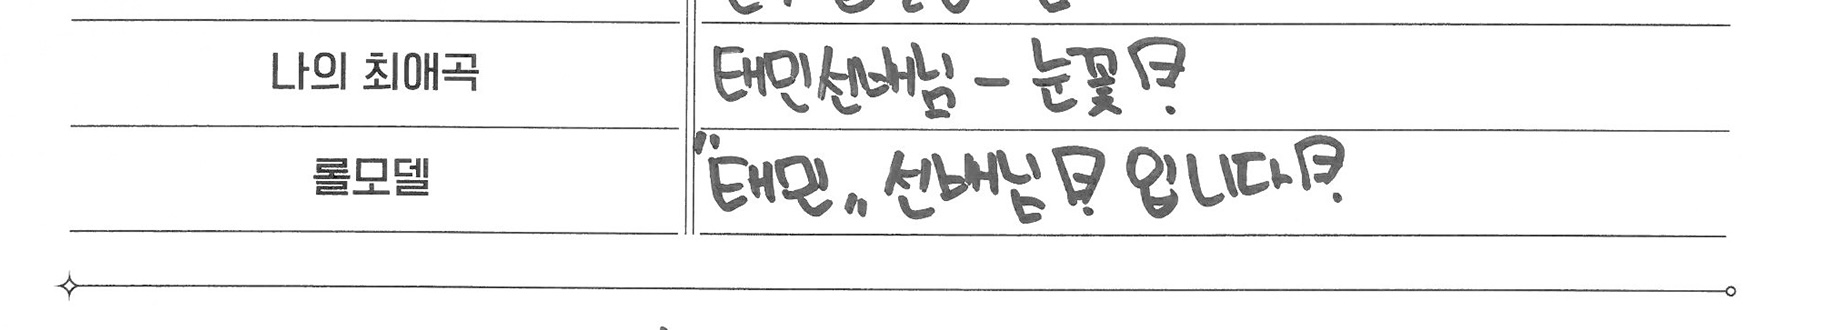 나의 최애곡 태민선배님 - 눈꽃!
롤모델 "태민" 선배님! 입니다!